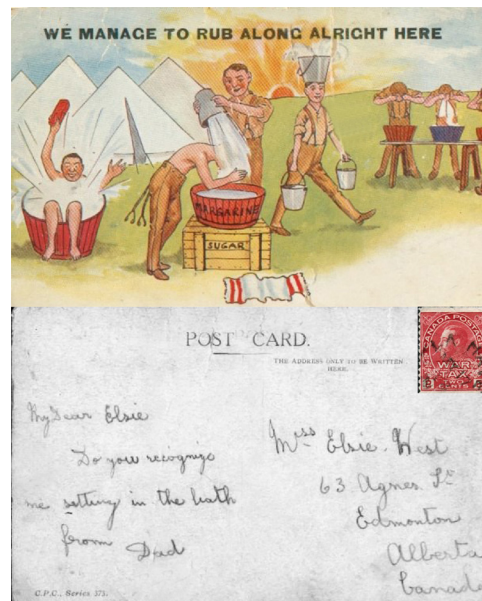 WE MANAGE TO RUB ALONG ALRIGHT HERE
MARGARINE
SUGAR
POST CARD.
THE ADDRESS ONLY TO BE WRITTEN
HERE.
CANADA POSTAGE
WAR
TAX
2 TWO 2
CENTS
My Dear Elsie
Do you recognize
me setting in the bath
from Dad
Miss Elsie. West
63 Agnes St
Edmonton
Alberta
Canada
C.P.C., Series 375.